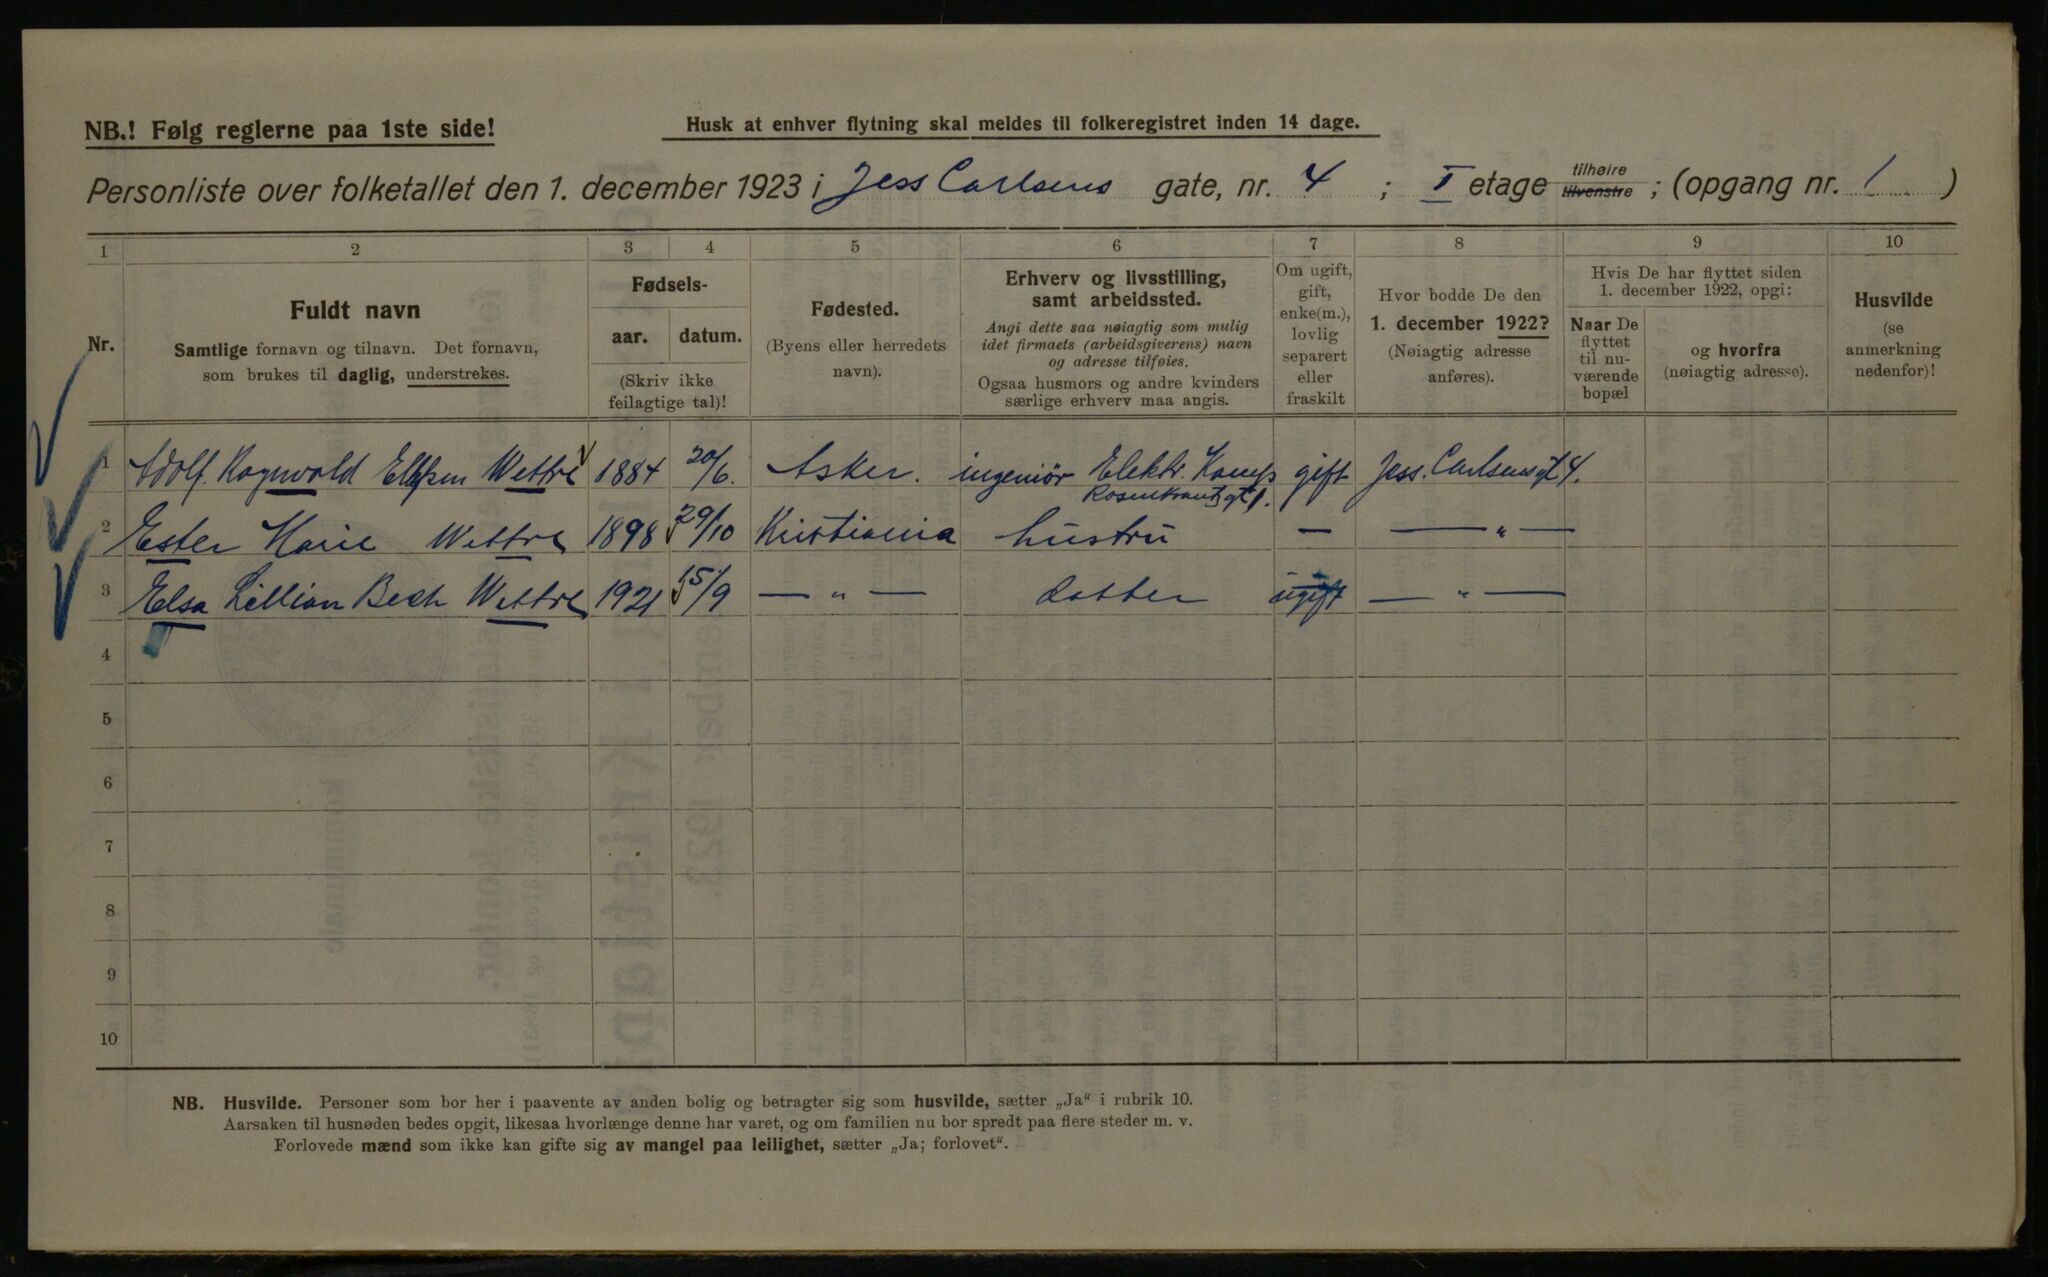 NB.! Følg reglerne paa 1ste side!
Husk at enhver flytning skal meldes til folkeregistret inden 14 dage.
Personliste over folketallet den 1. december 1923 i Jess Carlsens gate, nr. 4 ; I etage tilhøire tilvenstre ; (opgang nr. 1 )
1 2 3 4 5 6 7 8 9 10
Nr.
Fuldt navn
Samtlige fornavn og tilnavn. Det fornavn,
som brukes til daglig, understrekes.
Fødsels-
aar. datum.
(Skriv ikke
feilagtige tal)!
Fødested.
(Byens eller herredets
navn).
Erhverv og livsstilling,
samt arbeidssted.
Angi dette saa nøiagtig som mulig
idet firmaets (arbeidsgiverens) navn
og adresse tilføies.
Ogsaa husmors og andre kvinders
særlige erhverv maa angis.
Om ugift,
gift,
enke(m.),
lovlig
separert
eller
fraskilt
Hvor bodde De den
1. december 1922?
(Nøiagtig adresse
anføres).
Hvis De har flyttet siden
1. december 1922, opgi:
Naar De
flyttet
til nu-
værende
bopæl
og hvorfra
(nøiagtig adresse).
Husvilde
(se
anmerkning
nedenfor)!
1 Adolf Ragnvald Wettre 1884 20/6. Asker. ingeniør Elektr. Komp gift Jess. Carlsensgt 4.
Rosenkrantzgt 1.
2 Ester Marie Wettre 1898 29/10 Kristiania hustru — — „ —
3 Elsa Lillian Bech Wettre 1921 15/9 — „ — datter ugift — „ —
4
5
6
7
8
9
10
NB. Husvilde. Personer som bor her i paavente av anden bolig og betragter sig som husvilde, sætter „Ja“ i rubrik 10.
Aarsaken til husnøden bedes opgit, likesaa hvorlænge denne har varet, og om familien nu bor spredt paa flere steder m. v.
Forlovede mænd som ikke kan gifte sig av mangel paa leilighet, sætter „Ja; forlovet“.